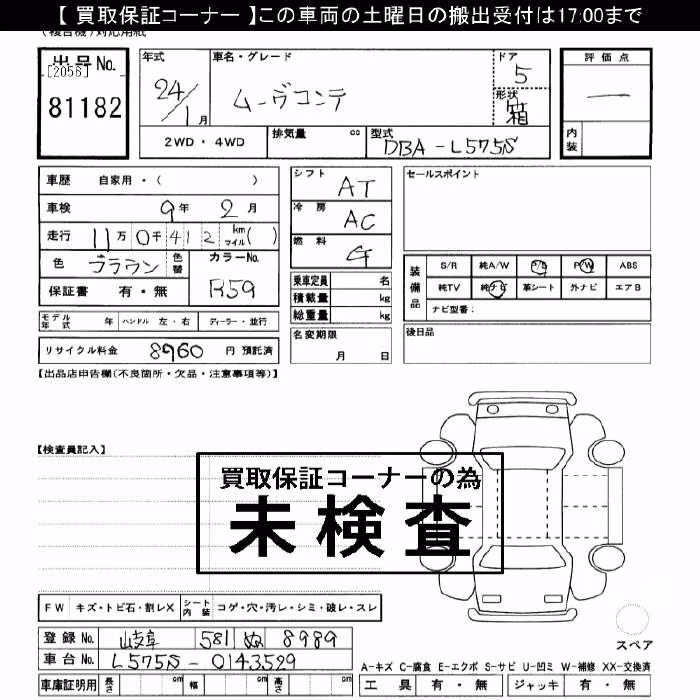 【 買取保証コーナー 】この車両の土曜日の搬出受付は17:00まで
出品No.
[2056]
81182
年式
24/1月
車名・グレード
ムーヴコンテ
ドア
5
形状
箱
評価点
—
内装
2WD ・ 4WD
排気量 cc
型式
DBA-L575S
車歴 自家用・( )
車検 9年 2月
走行 11万 0千 412 km マイル( )
色 ブラウン 色替
カラーNo.
R59
保証書 有・無
シフト AT
冷房 AC
燃料 G
乗車定員 名
積載量 kg
総重量 kg
名変期限
月 日
セールスポイント
装備品
S/R 純A/W P/S P/W ABS
純TV 純ナビ 革シート 外ナビ エアB
ナビ型番:
後日品
モデル年式 年 ハンドル 左・右 ディーラー・並行
リサイクル料金 8960 円 預託済
【出品店申告欄(不良箇所・欠品・注意事項等)】
【検査員記入】
買取保証コーナーの為
未検査
FW キズ・トビ石・割レX シート内装 コゲ・穴・汚レ・シミ・破レ・スレ
登録No. 岐阜 581 ぬ 8989
車台No. L575S-0143529
車庫証明用 長さ cm 幅 cm 高さ cm
スペア
A-キズ C-腐食 E-エクボ S-サビ U-凹ミ W-補修 XX-交換済
工具 有・無 ジャッキ 有・無